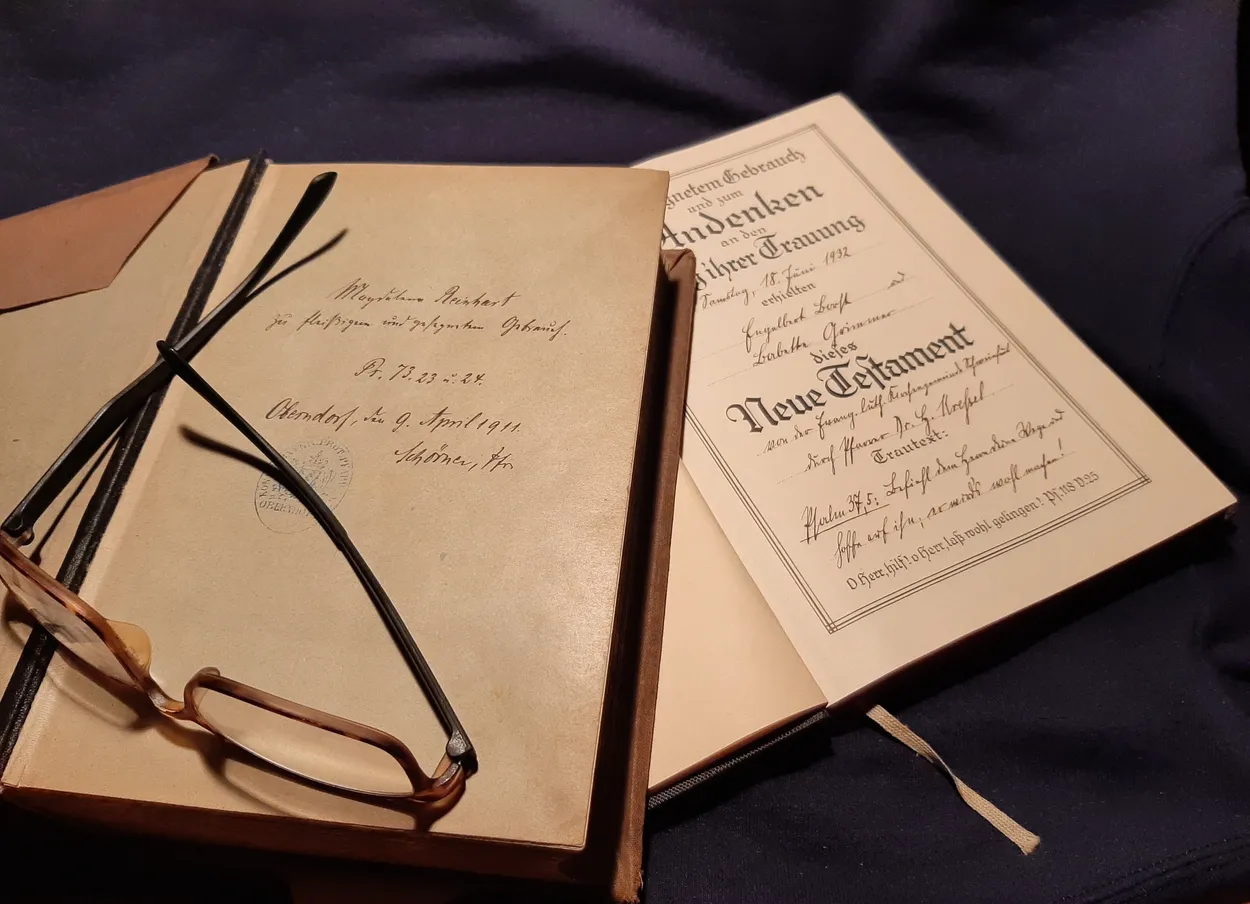 Magdalena Reinhart
zu fleißigem und gesegneten Gebrauch.
Ps. 73. 23 u. 24.
Oberndorf, den 9. April 1911.
Schörner, Pfr.
gnetem Gebrauch
und zum
Andenken
an den
ihrer Trauung
Samstag, 18. Juni 1932
erhielten
Engelbert und
Babette Grimmer
dieses
Neue Testament
von der Evang. luth. Kirchengemeinde Schweinfurt
durch Pfarrer Dr. G.
Trautext:
Psalm 37,5: Befiehl dem Herrn deine Wege und
hoffe auf ihn, er wird's wohl machen!
O Herr, hilf! o Herr, laß wohl gelingen! Ps. 118 V. 25